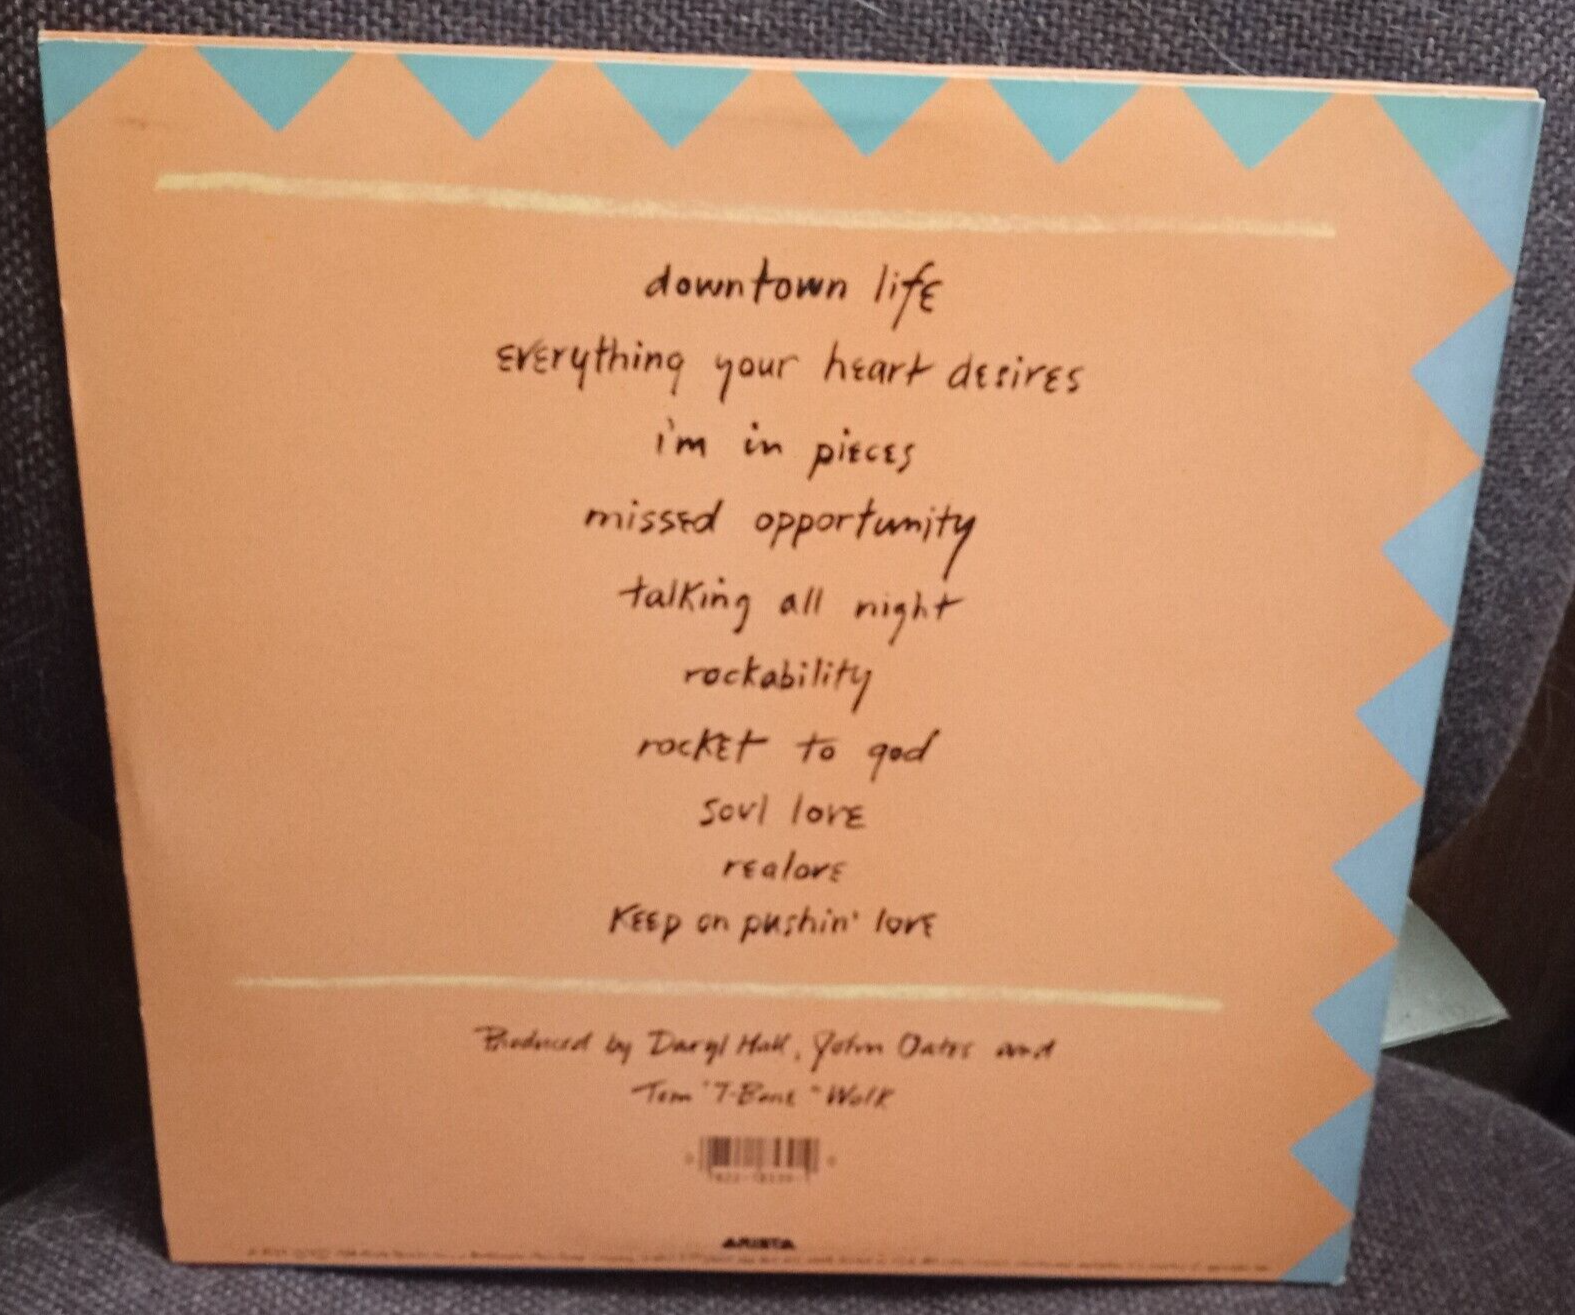 downtown life
everything your heart desires
i'm in pieces
missed opportunity
talking all night
rockability
rocket to god
soul love
realove
keep on pushin' love
Produced by Daryl Hall, John Oates and
Tom "T-Bone" Wolk
ARISTA